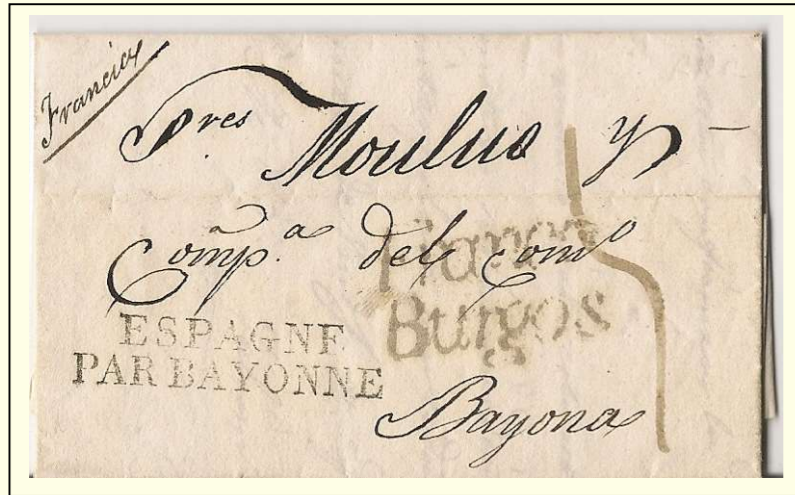 Francia
Sres Moulus y
Compa. del Como
Franco
Burgos
ESPAGNE
PAR BAYONNE
Bayona